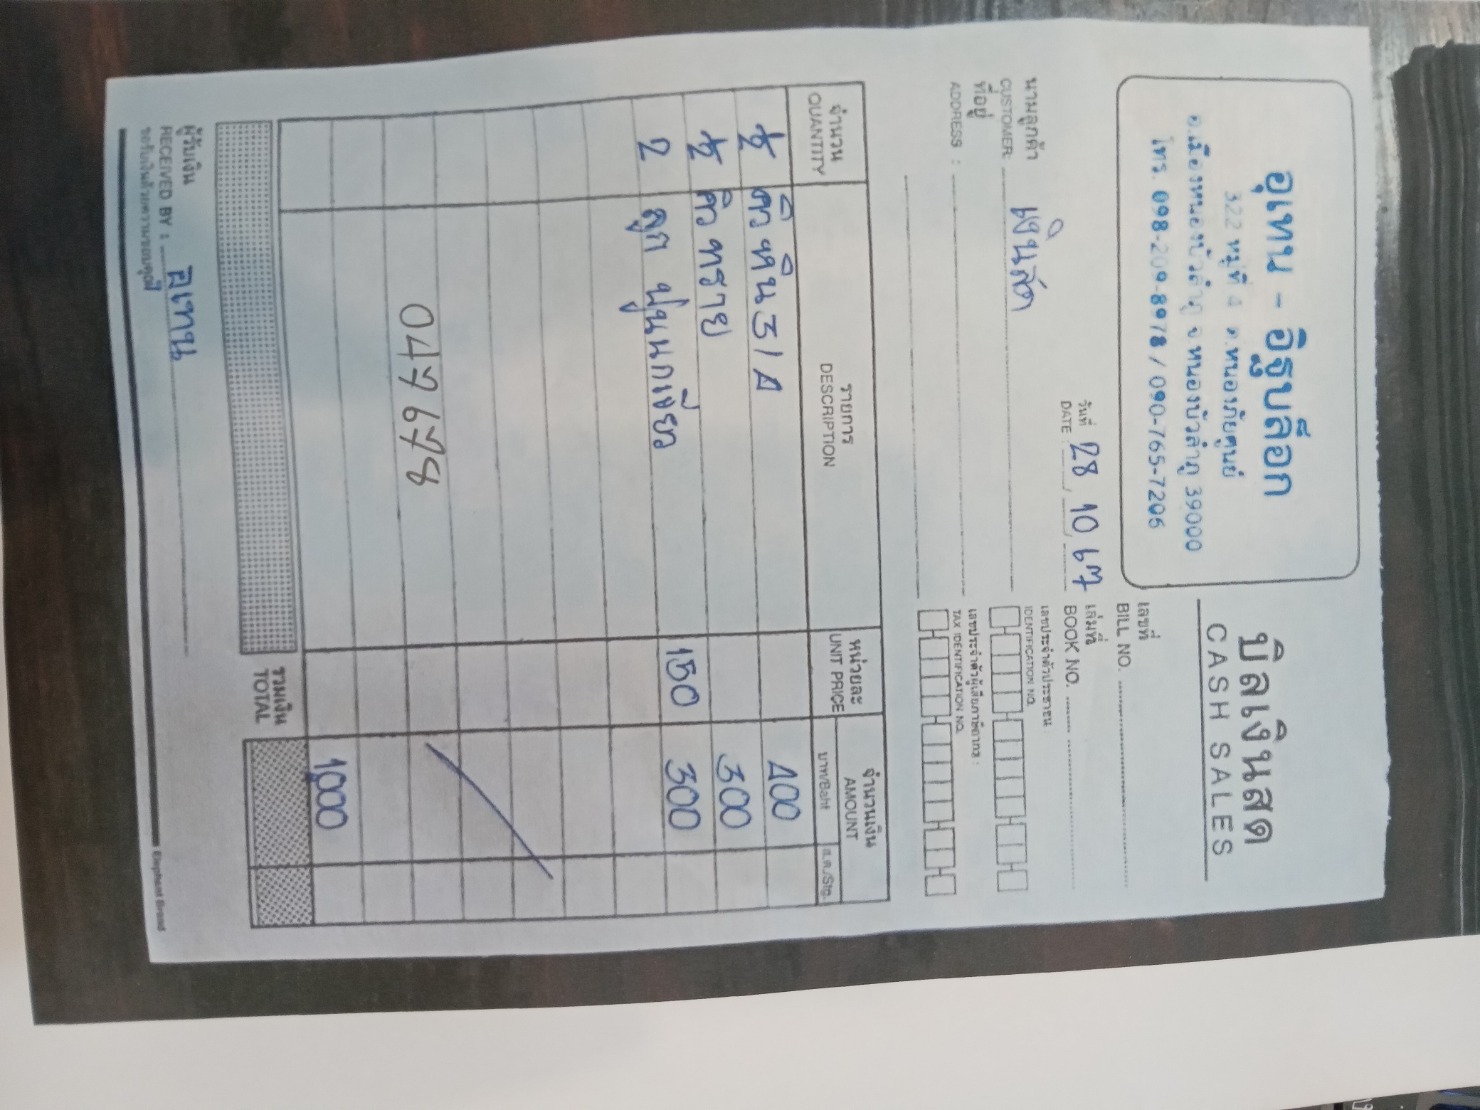 อุเทน - อิฐบล็อก
322 หมู่ที่ 4 ต.หนองภัยศูนย์
อ.เมืองหนองบัวลำภู จ.หนองบัวลำภู 39000
โทร. 098-209-8978 / 090-765-7206
บิลเงินสด
CASH SALES
เลขที่
BILL NO.
วันที่ 28 10 67
DATE :
เล่มที่
BOOK NO.
นามลูกค้า
CUSTOMER: เงินสด
เลขประจำตัวประชาชน :
IDENTIFICATION NO.
ที่อยู่
ADDRESS :
เลขประจำตัวผู้เสียภาษีอากร :
TAX IDENTIFICATION NO.
จำนวน รายการ หน่วยละ จำนวนเงิน
QUANTITY DESCRIPTION UNIT PRICE AMOUNT
บาท/Baht ส.ต./Stg.
½ คิว หิน 3/4 400
½ คิว ทราย 300
2 ลูก ปูนนกเขียว 150 300
047678
1,000
รวมเงิน
TOTAL
ผู้รับเงิน
RECEIVED BY : อุเทน
ขอรับเงินด้วยความขอบคุณ
Elephant Brand